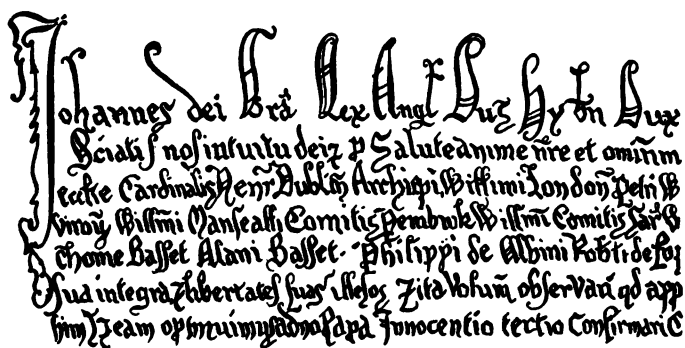 Johannes dei Grā Rex Angl Duz Hybn Dux
Sciatis nos intuitu dei et p Salute anime nr̄e et omium
eccl̄ie Cardinalis Henr̄ Dublin Archiep̄i, Will̄imi London̄ Petri W
Will̄mi Marescalli Comitis Pembrok Will̄mi Comitis Sar̄ W
Thome Basset Alani Basset. Philippi de Albini Rob̄ti de
sua integra et libertates suas illesas et ita volum̄ observari qd app
eam optinuimus a dno Papa Innocentio tertio Confirmari